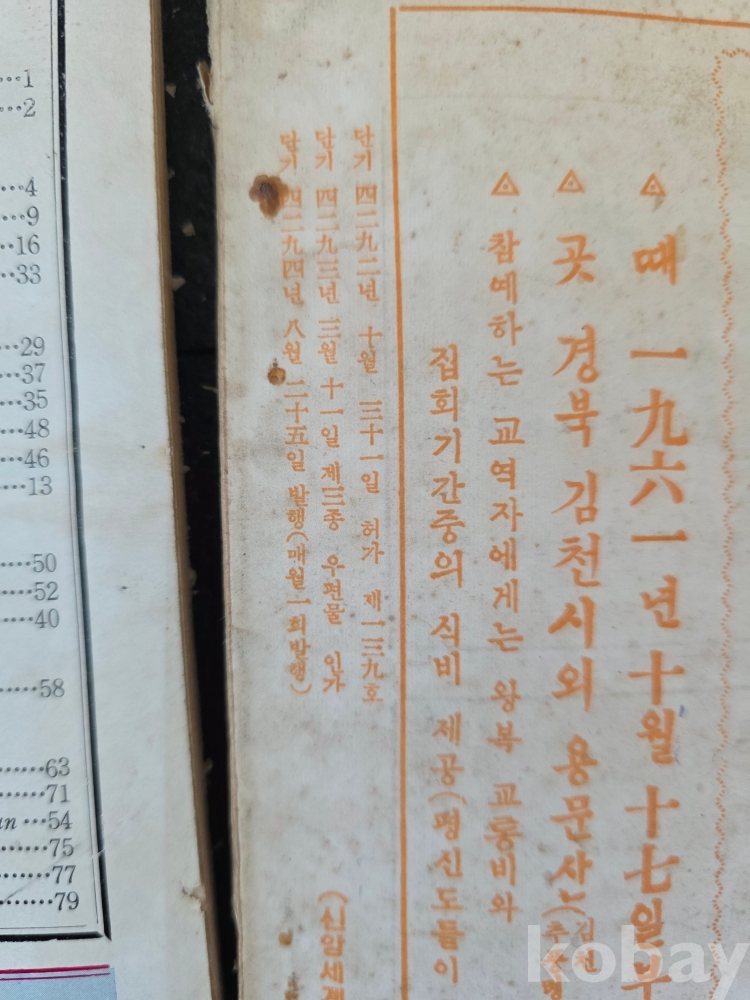 △ 때 一九六一년 十월 十七일부
△ 곳 경북 김천시외 용문사
(김천
△ 참예하는 교역자에게는 왕복 교통비와
집회기간중의 식비 제공(평신도들이
단기 四二九二년 十월 三十一일 허가 제一三九호
단기 四二九三년 三월 十一일 제三종 우편물 인가
단기 四二九四년 八월 二十五일 발행(매월一회발행)
(신앙세계
…1
…2
…4
…9
…16
…33
…29
…37
…35
…48
…46
…13
…50
…52
…40
…58
…63
…71
un …54
…75
…77
…79
kobay